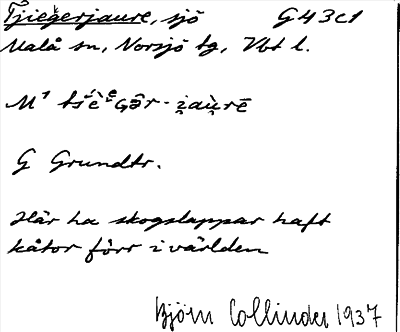 Tjiegerjaure, sjö G43c1
Malå sn, Norsjö tg, Vbt l.
G Grundtr.
Här ha skogslappar haft
kåtor förr i världen
Björn Collinder 1937